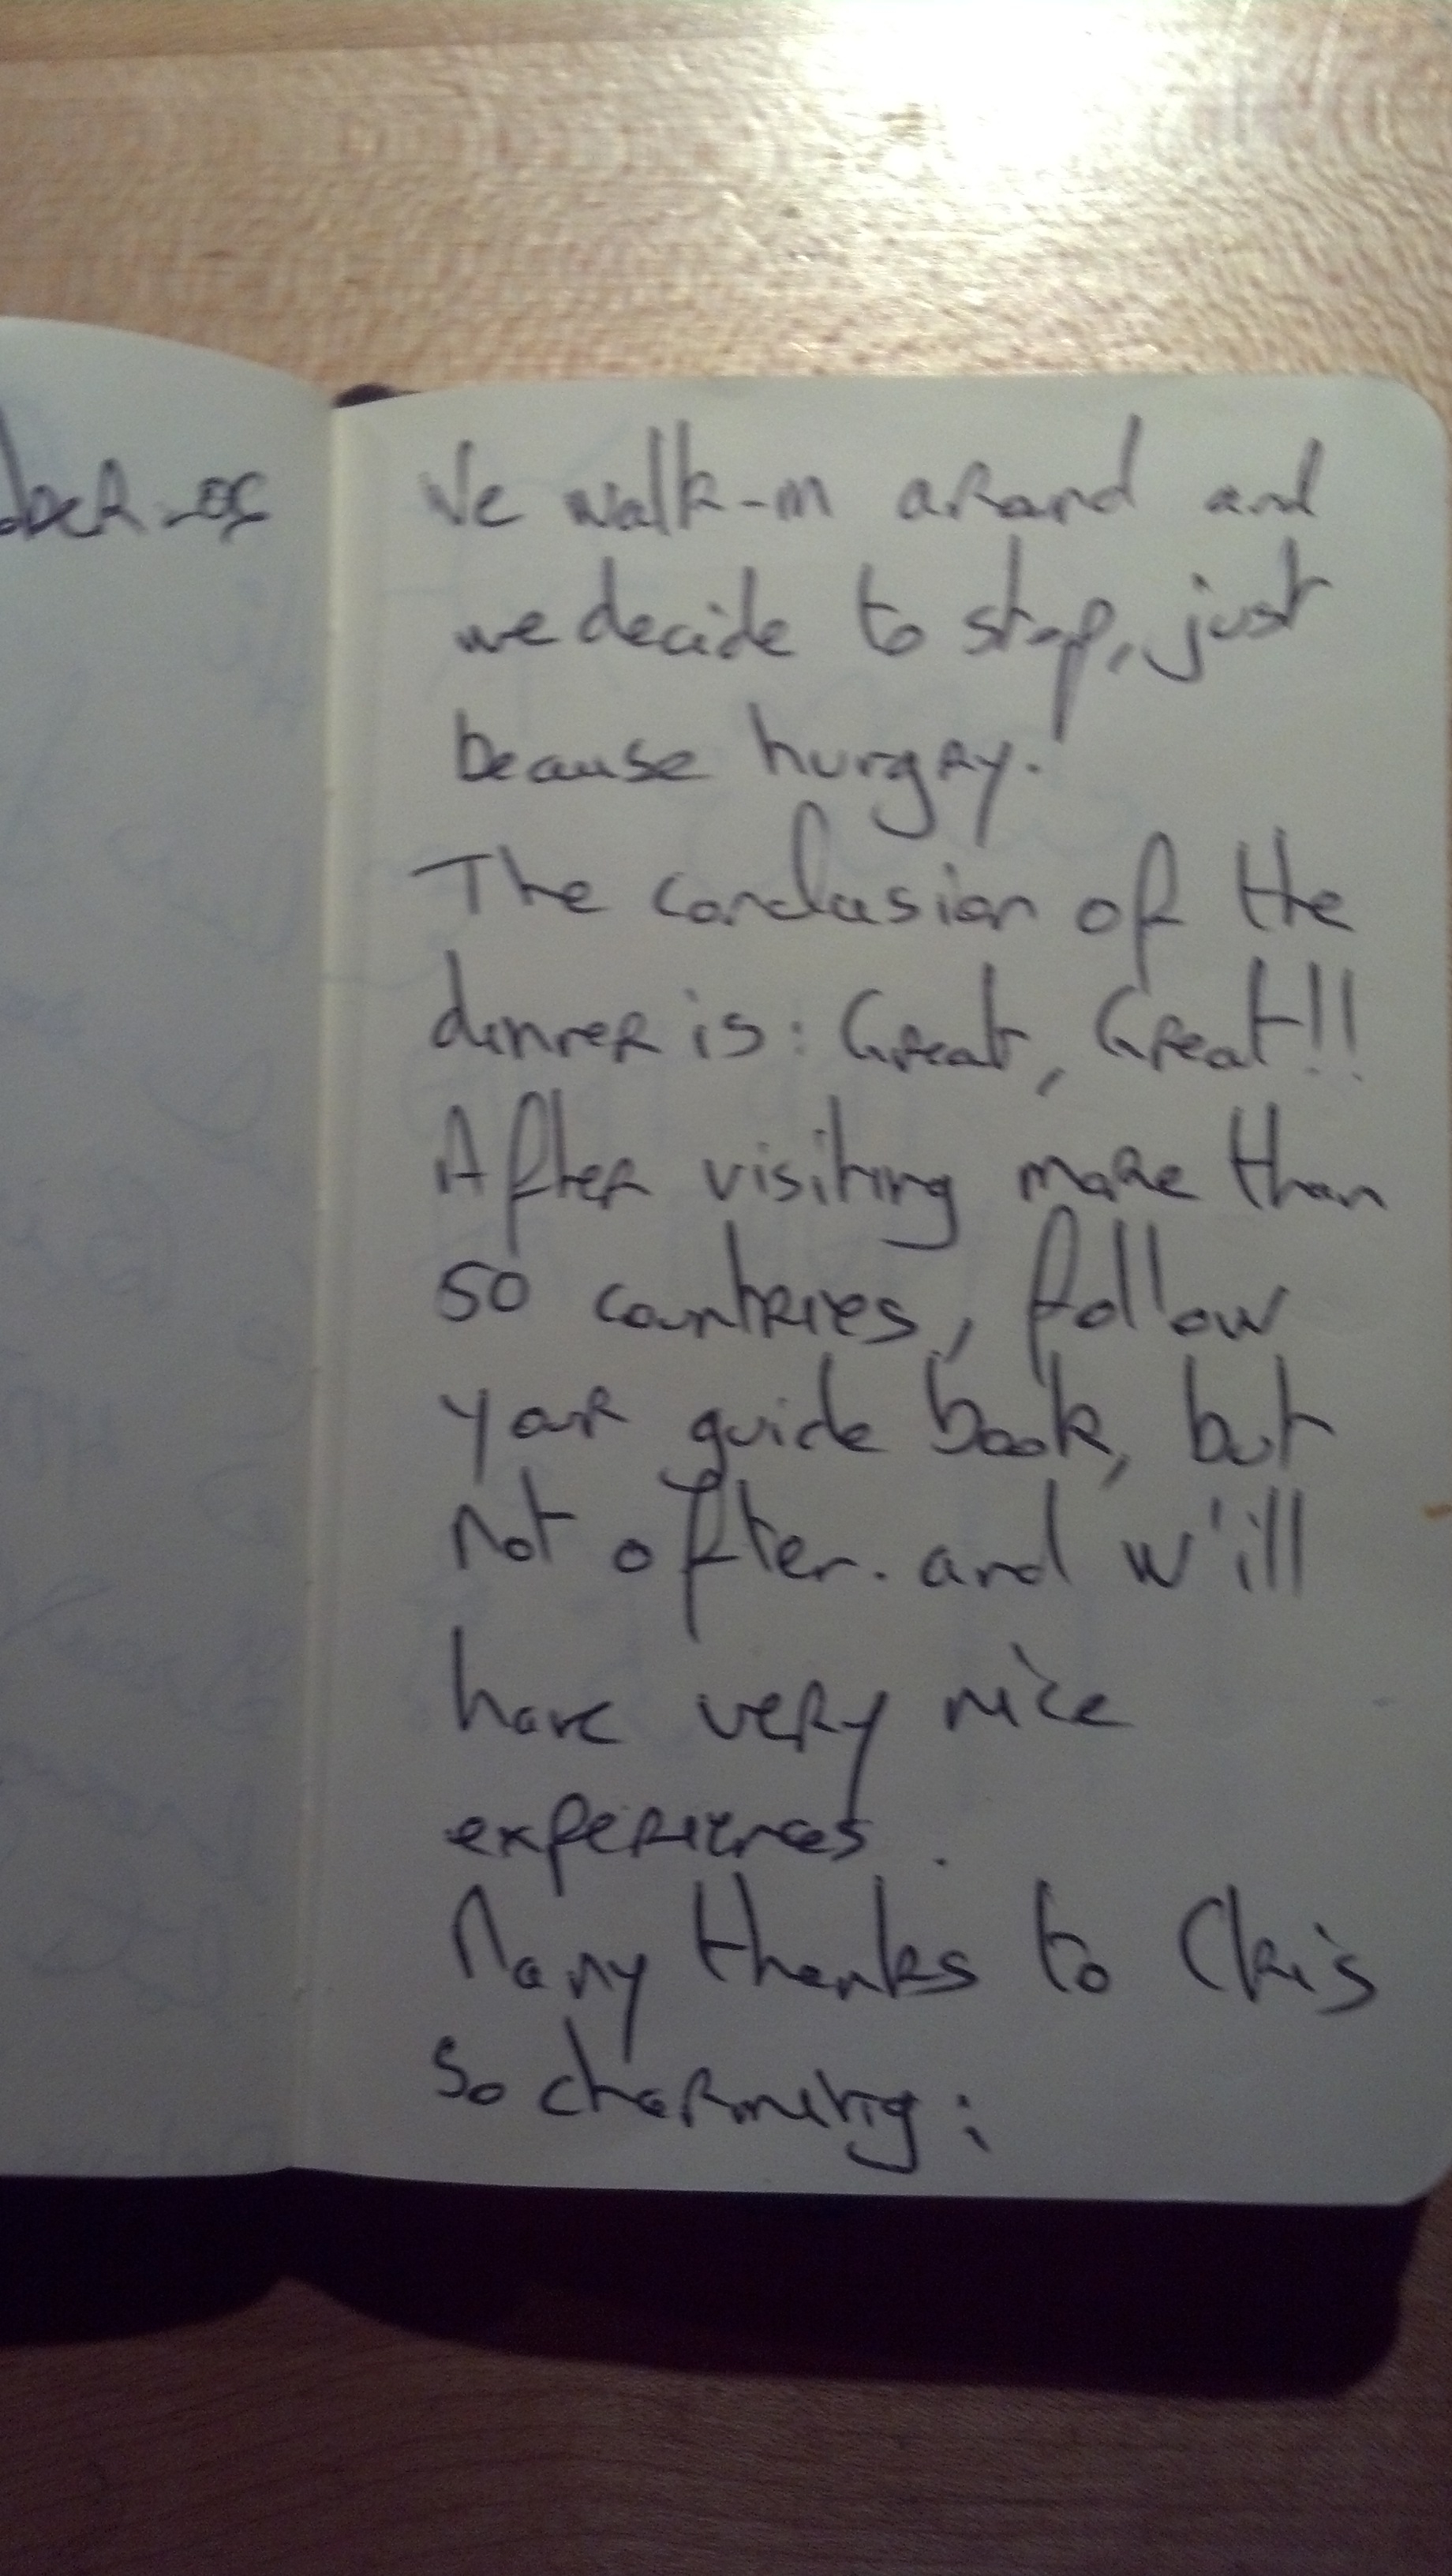 We walk-in around and
we decide to stop, just
because hurgry.
The conclusion of the
dinner is: Great, Great!!
After visiting more than
50 countries, follow
your guide book, but
not often. and w'ill
have very nice
experiences.
Many thanks to Chris
So charming: